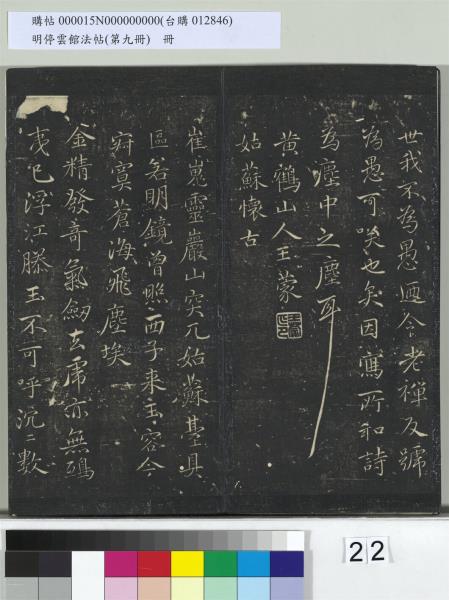 購帖 000015N000000000(台購 012846)
明停雲館法帖(第九冊) 冊
世我不為愚迺令老禪反號
為愚可唉也矣因寫所和詩
為塵中之塵耳
黃鶴山人王蒙
姑蘇懷古
崔嵬靈巖山突兀姑蘇臺具
區若明鏡曾照西子來主容今
寂寞蒼海飛塵埃
金精發奇氣劒去虎亦無鴟
夷已浮江滕王不可呼沉二數
22